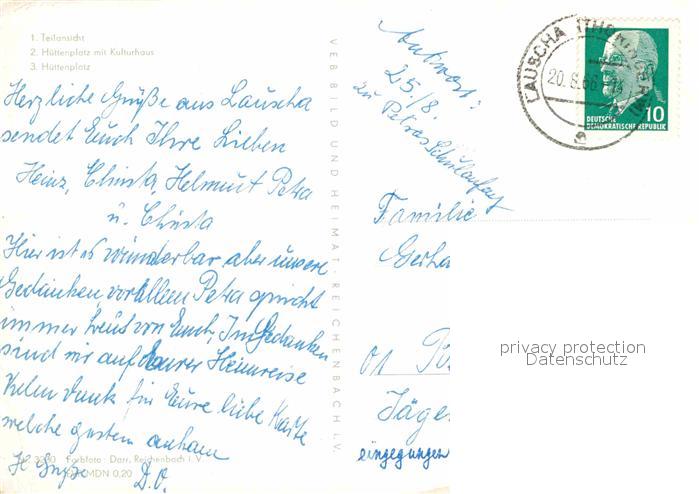 1. Teilansicht
2. Hüttenplatz mit Kulturhaus
3. Hüttenplatz
Herzliche Grüße aus Lauscha
sendet Euch Ihre Lieben
Heinz, Christa, Helmut Petra
u. Christa
Hier ist es wunderbar aber unsere
Gedanken, vor allem Petra spricht
immer von Euch, In Gedanken
sind wir auf Eurer Heimreise
Vielen Dank für Eure liebe Karte
welche gestern ankam
Grüße D.O.
Farbfoto: Darr, Reichenbach i. V.
MDN 0,20
VEB BILD UND HEIMAT, REICHENBACH i.V.
Antwort:
25/8.
zu Petras Schulanfang
LAUSCHA (THÜR
20.8.66
DEUTSCHE
DEMOKRATISCHE REPUBLIK
10
Familie
Gerha
01 Po
Jäge
eingegangen
privacy protection
Datenschutz